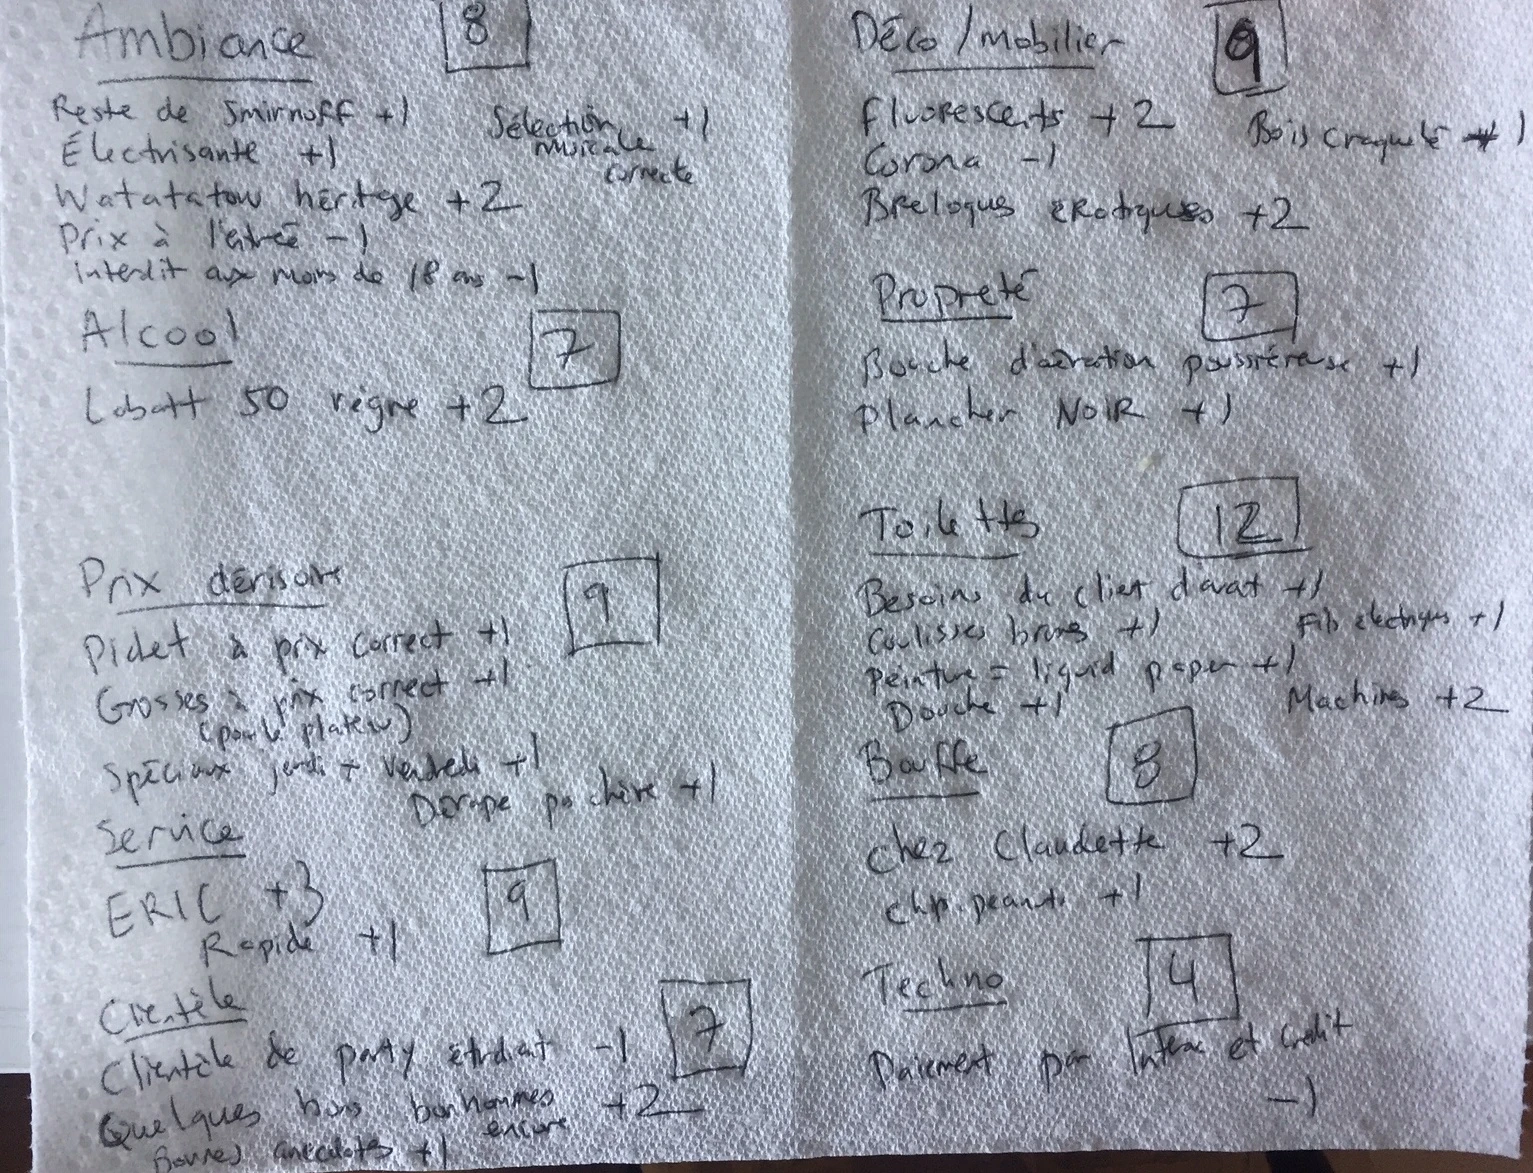 Ambiance 8
Reste de Smirnoff +1
Sélection musicale correcte +1
Électrisante +1
Watatatow héritage +2
Prix à l'entrée -1
interdit aux moins de 18 ans -1
Alcool 7
Labatt 50 règne +2
Prix dérisoire 9
Pichet à prix correct +1
Grosses à prix correct +1
(pour le plateau)
Spéciaux jeudi + vendredi +1
Dérape pas chère +1
Service 9
ERIC +3
Rapide +1
Clientèle 7
Clientèle de party étudiant -1
Quelques bons bonhommes encore +2
Bonnes anecdotes +1
Déco/mobilier 9
Fluorescents +2
Bois craqueté +1
Corona -1
Breloques érotiques +2
Propreté 7
Bouche d'aération poussiéreuse +1
Plancher NOIR +1
Toilettes 12
Besoins du client d'avant +1
Coulisses brunes +1
Fils électriques +1
Peinture = liquid paper +1
Douche +1
Machines +2
Bouffe 8
Chez Claudette +2
chip. peanuts +1
Techno 4
Paiement par Interac et crédit
-1